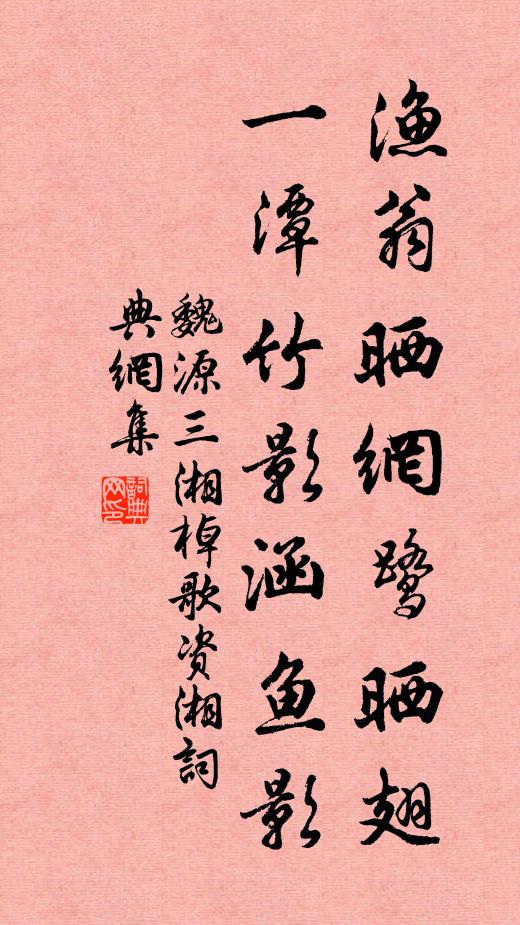 渔翁晒網鹭晒翅
一潭竹影涵鱼影
魏源三湘棹歌资湘詞
典網集
詞典网印